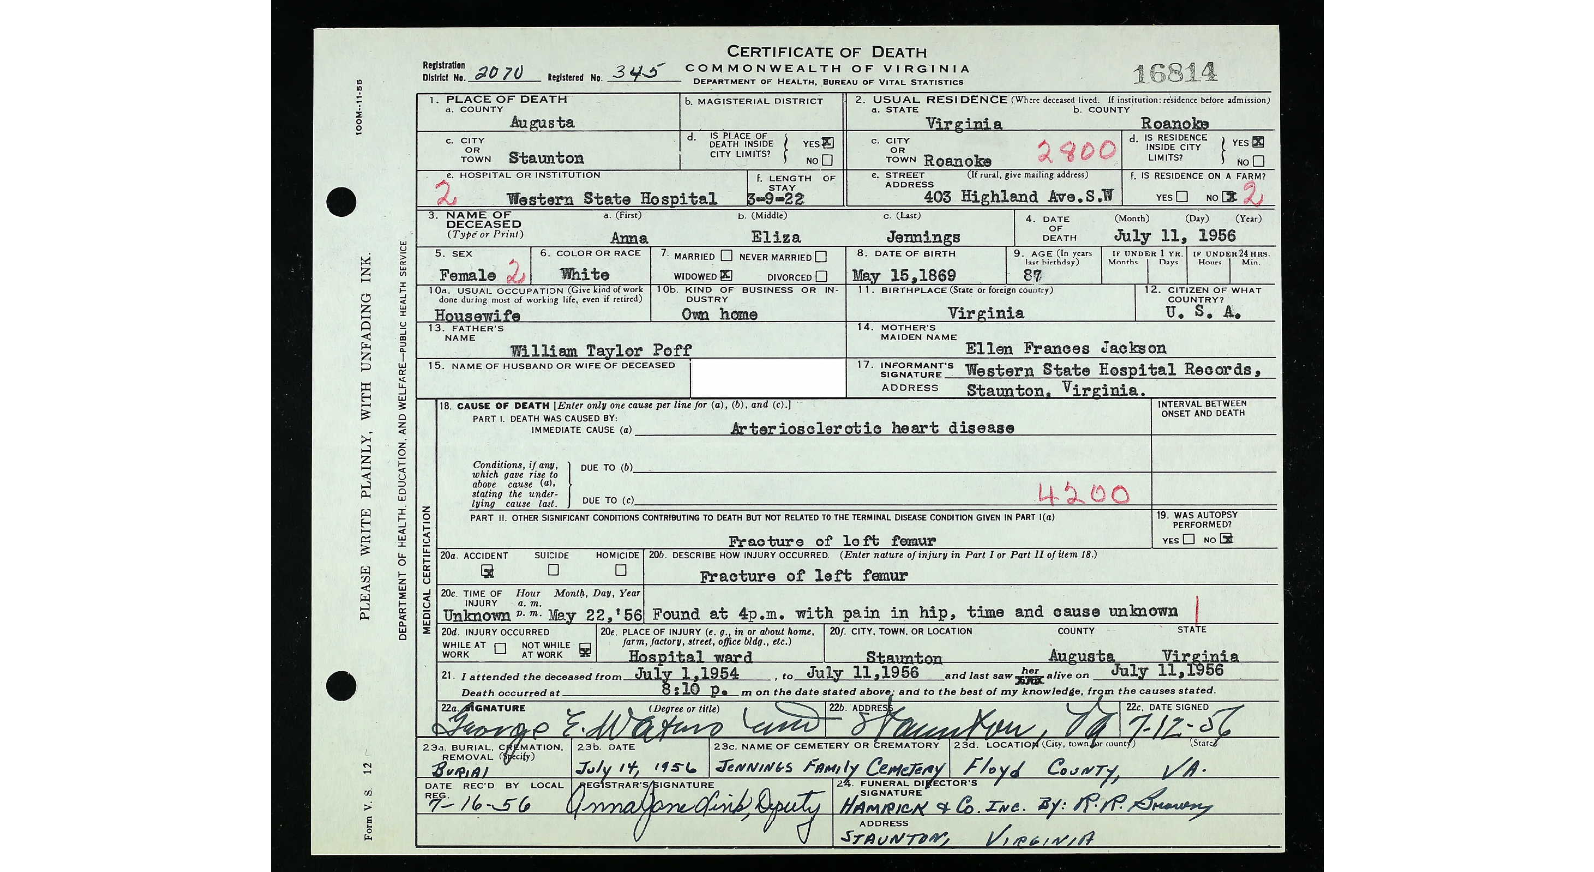 CERTIFICATE OF DEATH
COMMONWEALTH OF VIRGINIA
DEPARTMENT OF HEALTH, BUREAU OF VITAL STATISTICS
Registration District No. 2070 Registered No. 345
16814
100M--11-55
1. PLACE OF DEATH
a. COUNTY Augusta
b. MAGISTERIAL DISTRICT
2. USUAL RESIDENCE (Where deceased lived. If institution: residence before admission)
a. STATE Virginia
b. COUNTY Roanoke
c. CITY OR TOWN Staunton
d. IS PLACE OF DEATH INSIDE CITY LIMITS? YES X NO
c. CITY OR TOWN Roanoke 2800
d. IS RESIDENCE INSIDE CITY LIMITS? YES X NO
e. HOSPITAL OR INSTITUTION
2 Western State Hospital
f. LENGTH OF STAY
3-9-22
e. STREET ADDRESS (If rural, give mailing address)
403 Highland Ave.S.W
f. IS RESIDENCE ON A FARM?
YES NO X 2
3. NAME OF DECEASED (Type or Print)
a. (First) Anna
b. (Middle) Eliza
c. (Last) Jennings
4. DATE OF DEATH (Month) (Day) (Year)
July 11, 1956
5. SEX
Female 2
6. COLOR OR RACE
White
7. MARRIED NEVER MARRIED
WIDOWED X DIVORCED
8. DATE OF BIRTH
May 15,1869
9. AGE (In years last birthday)
87
IF UNDER 1 YR. Months Days
IF UNDER 24 HRS. Hours Min.
10a. USUAL OCCUPATION (Give kind of work done during most of working life, even if retired)
Housewife
10b. KIND OF BUSINESS OR INDUSTRY
Own home
11. BIRTHPLACE (State or foreign country)
Virginia
12. CITIZEN OF WHAT COUNTRY?
U. S. A.
13. FATHER'S NAME
William Taylor Poff
14. MOTHER'S MAIDEN NAME
Ellen Frances Jackson
15. NAME OF HUSBAND OR WIFE OF DECEASED
17. INFORMANT'S SIGNATURE Western State Hospital Records,
ADDRESS Staunton, Virginia.
18. CAUSE OF DEATH [Enter only one cause per line for (a), (b), and (c).]
INTERVAL BETWEEN ONSET AND DEATH
PART I. DEATH WAS CAUSED BY:
IMMEDIATE CAUSE (a) Arteriosclerotic heart disease
Conditions, if any, which gave rise to above cause (a), stating the underlying cause last.
DUE TO (b)
DUE TO (c) 4200
PART II. OTHER SIGNIFICANT CONDITIONS CONTRIBUTING TO DEATH BUT NOT RELATED TO THE TERMINAL DISEASE CONDITION GIVEN IN PART I(a)
Fracture of left femur
19. WAS AUTOPSY PERFORMED?
YES NO X
20a. ACCIDENT X SUICIDE HOMICIDE
20b. DESCRIBE HOW INJURY OCCURRED. (Enter nature of injury in Part I or Part II of item 18.)
Fracture of left femur
20c. TIME OF INJURY Hour a. m. p. m. Month, Day, Year
Unknown May 22,'56
Found at 4p.m. with pain in hip, time and cause unknown
20d. INJURY OCCURRED
WHILE AT WORK NOT WHILE AT WORK X
20e. PLACE OF INJURY (e. g., in or about home, farm, factory, street, office bldg., etc.)
Hospital ward
20f. CITY, TOWN, OR LOCATION COUNTY STATE
Staunton Augusta Virginia
21. I attended the deceased from July 1,1954, to July 11,1956 and last saw her alive on July 11,1956
Death occurred at 8:10 p. m on the date stated above; and to the best of my knowledge, from the causes stated.
22a. SIGNATURE (Degree or title)
George E. Waters
22b. ADDRESS
Staunton, Va
22c. DATE SIGNED
7-12-56
23a. BURIAL, CREMATION, REMOVAL (Specify)
BURIAL
23b. DATE
July 14, 1956
23c. NAME OF CEMETERY OR CREMATORY
JENNINGS FAMILY CEMETERY
23d. LOCATION (City, town, or county) (State)
FLOYD COUNTY, VA.
DATE REC'D BY LOCAL REG.
7-16-56
REGISTRAR'S SIGNATURE
Anna Jane Link, Deputy
24. FUNERAL DIRECTOR'S SIGNATURE
HAMRICK & Co. INC. BY: R.R.
ADDRESS
STAUNTON, VIRGINIA
MEDICAL CERTIFICATION
PLEASE WRITE PLAINLY, WITH UNFADING INK.
DEPARTMENT OF HEALTH, EDUCATION, AND WELFARE—PUBLIC HEALTH SERVICE
Form V. S. 12